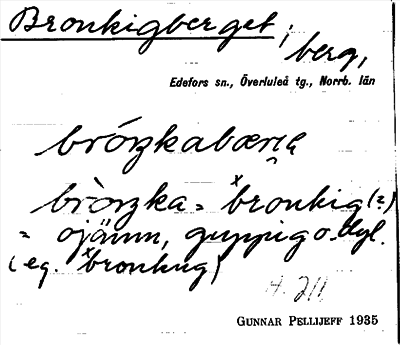 Bronkigberget,
berg,
Edefors sn., Överluleå tg., Norrb. län
brȯŋkabærɡa
brȯŋka = ˣbronkig (?)
= ojämn, guppig o. dyl.
(eg. ˣbronkug)
GUNNAR PELLIJEFF 1935